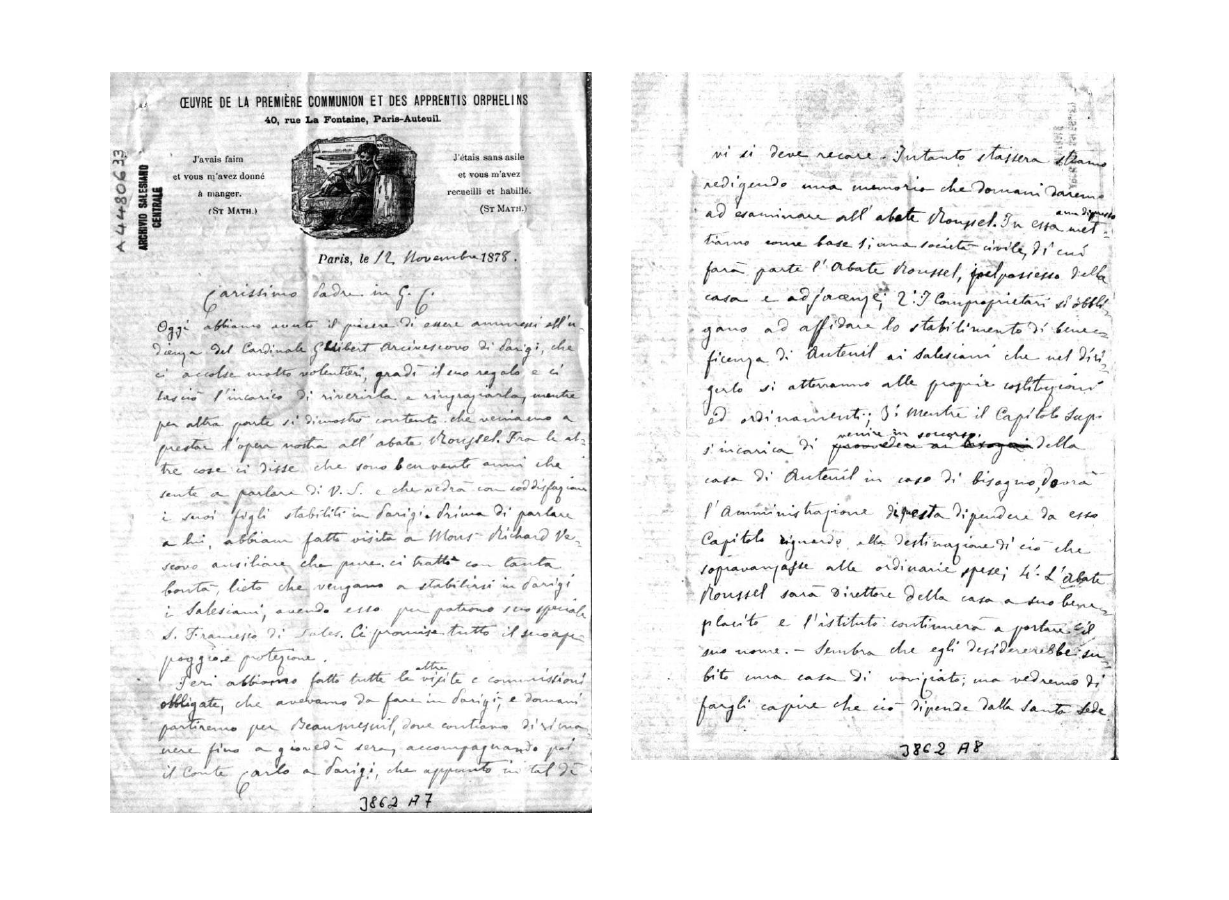 ŒUVRE DE LA PREMIÈRE COMMUNION ET DES APPRENTIS ORPHELINS
40, rue La Fontaine, Paris-Auteuil.
J'avais faim
et vous m'avez donné
à manger.
(ST MATH.)
J'étais sans asile
et vous m'avez
recueilli et habillé.
(ST MATH.)
A4480633
ARCHIVIO SALESIANO
CENTRALE
Paris, le 12 Novembre 1878.
Carissimo Padre in G. C.
Oggi abbiamo avuto il piacere di essere ammessi all'u-
dienza del Cardinale Ghibert Arcivescovo di Parigi, che
ci accolse molto volentieri, gradì il suo regalo e ci
lasciò l'incarico di riverirla e ringraziarla, mentre
per altra parte si dimostrò contento che veniamo a
prestar l'opera nostra all'abate Roussel. Fra le al-
tre cose ci disse che sono ben venti anni che
sente a parlare di V. S. e che vedrà con soddisfazione
i suoi figli stabiliti in Parigi. Prima di parlare
a lui, abbiam fatto visita a Mons Richard Ve-
scovo ausiliare che pure ci trattò con tanta
bontà, lieto che vengano a stabilirsi in Parigi
i Salesiani, avendo esso per patrono suo speciale
S. Francesco di Sales. Ci promise tutto il suo ap-
poggio e protezione.
Ieri abbiamo fatto tutte le altre visite e commissioni
obbligate, che avevamo da fare in Parigi, e domani
partiremo per Beaumesnil, dove contiamo di rima
nere fino a giovedì sera, accompagnando poi
il Conte Carlo a Parigi, che appunto in tal dì
3862 A7
vi si deve recare. Intanto stassera stiamo
redigendo una memoria che domani daremo
ad esaminare all'abate Roussel. In essa met-
tiamo come base 1; una società civile, di cui
farà parte l'Abate Roussel, pel possesso della
casa e adjacenze; 2: I Comproprietari si obbli-
gano ad affidare lo stabilimento di bene-
ficenza di Auteuil ai Salesiani che nel diri-
gerlo si atterranno alle proprie costituzioni
ed ordinamenti; 3: Mentre il Capitolo Sup.
s'incarica di venire in soccorso della
casa di Auteuil in caso di bisogno, dovrà
l'Amministrazione di questa dipendere da esso
Capitolo riguardo alla destinazione di ciò che
sopravanzasse alle ordinarie spese; 4: L'Abate
Roussel sarà direttore della casa a suo bene-
placito e l'istituto continuerà a portare il
suo nome. - Sembra che egli desidererebbe su-
bito una casa di noviziato; ma vedremo di
fargli capire che ciò dipende dalla Santa Sede
3862 A8